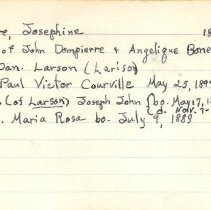 re, Josephine 18
of John Dompierre & Angelique Bone
Dan. Larson (Lariso)
Paul Victor Courville May 25, 189
(of Larson) Joseph John {bo. May 17, 1
d. Nov. 9-
. Maria Rosa bo. July 9, 1883